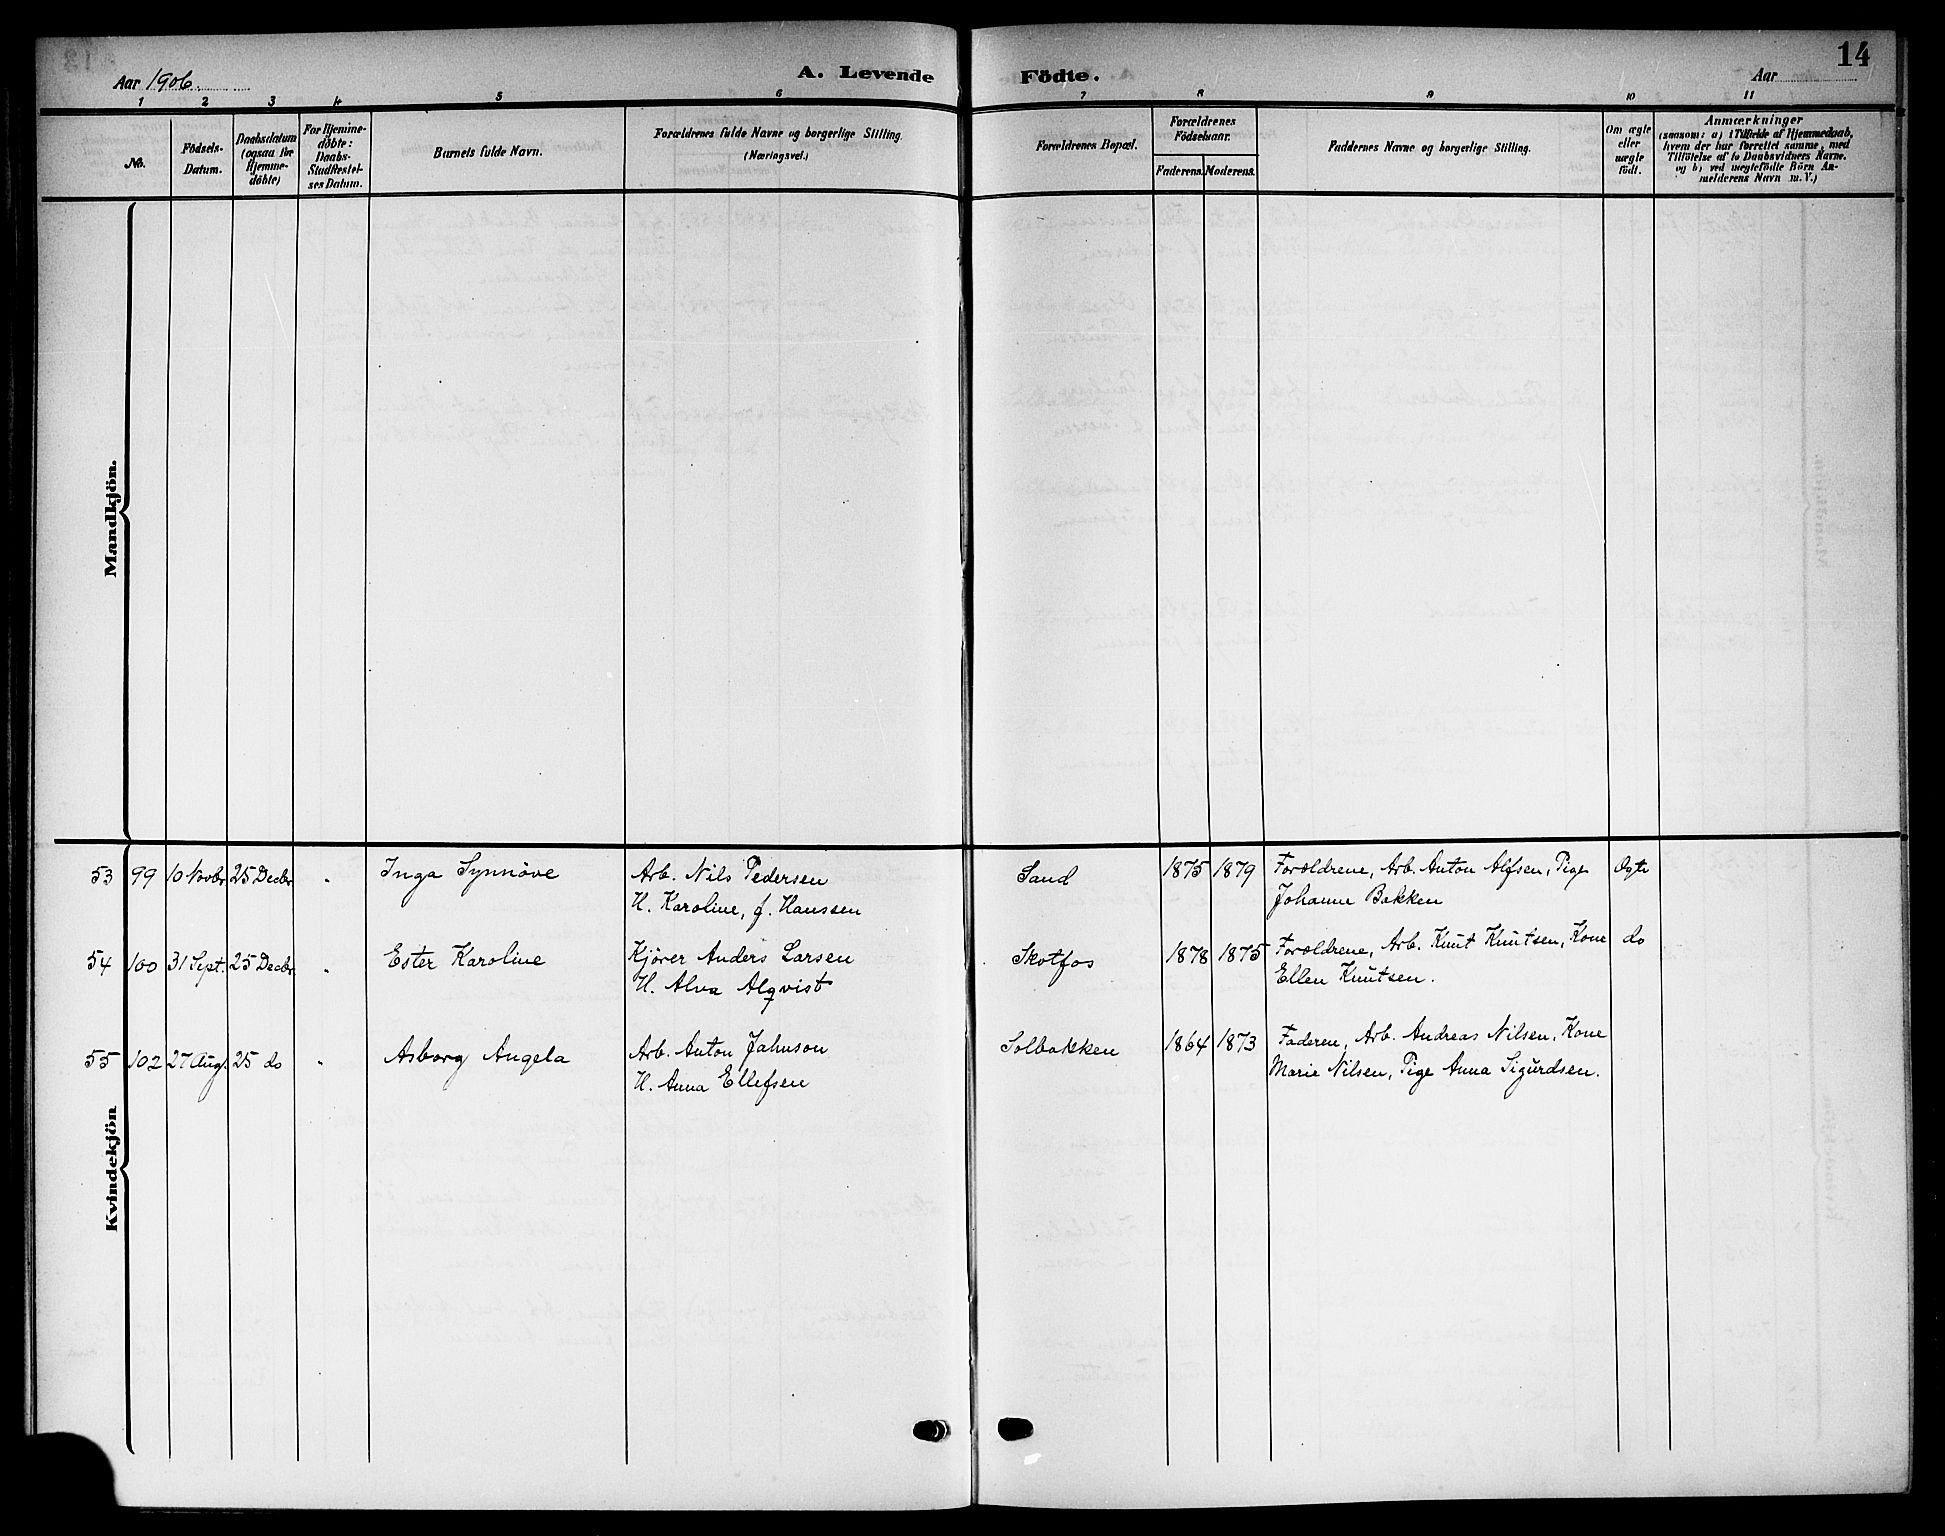 14
Aar 1906.
A. Levende Födte.
Aar
1 2 3 4 5 6 7 8 9 10 11
No.
Födsels-
Datum.
Daabsdatum
(ogsaa for
Hjemme-
døbte)
For Hjemme-
döbte:
Daabs-
Stadfæstel-
ses Datum.
Barnets fulde Navn.
Forældrenes fulde Navne og borgerlige Stilling.
(Næringsvei.)
Forældrenes Bopæl.
Forældrenes
Födselsaar.
Faderens. Moderens.
Faddernes Navne og borgerlige Stilling.
Om ægte
eller
uægte
födt.
Anmærkninger
(saasom: a) i Tilfælde af Hjemmedaab,
hvem der har forrettet samme, med
Tilföielse af to Daabsvidners Navne.
og b) ved uægtefödte Börn An-
melderens Navn m. V.)
Mandkjön.
53 99 10 Novbr 25 Decbr " Inga Synnöve Arb. Nils Pedersen Sand 1875 1879 Forældrene, Arb. Anton Alfsen, Pige Ægte
H. Karoline, f. Hanssen Johanne Bakken
54 100 31 Sept. 25 Decbr " Ester Karoline Kjörer Anders Larsen Skotfos 1878 1875 Forældrene, Arb. Knut Knutsen, Kone do
H. Alva Alqvist Ellen Knutsen.
55 102 27 Aug. 25 do " Asborg Angela Arb. Anton Jahnson Solbakken 1864 1873 Faderen, Arb. Andreas Nilsen, Kone
H. Anna Ellefsen Marie Nilsen, Pige Anna Sigurdsen.
Kvindekjön